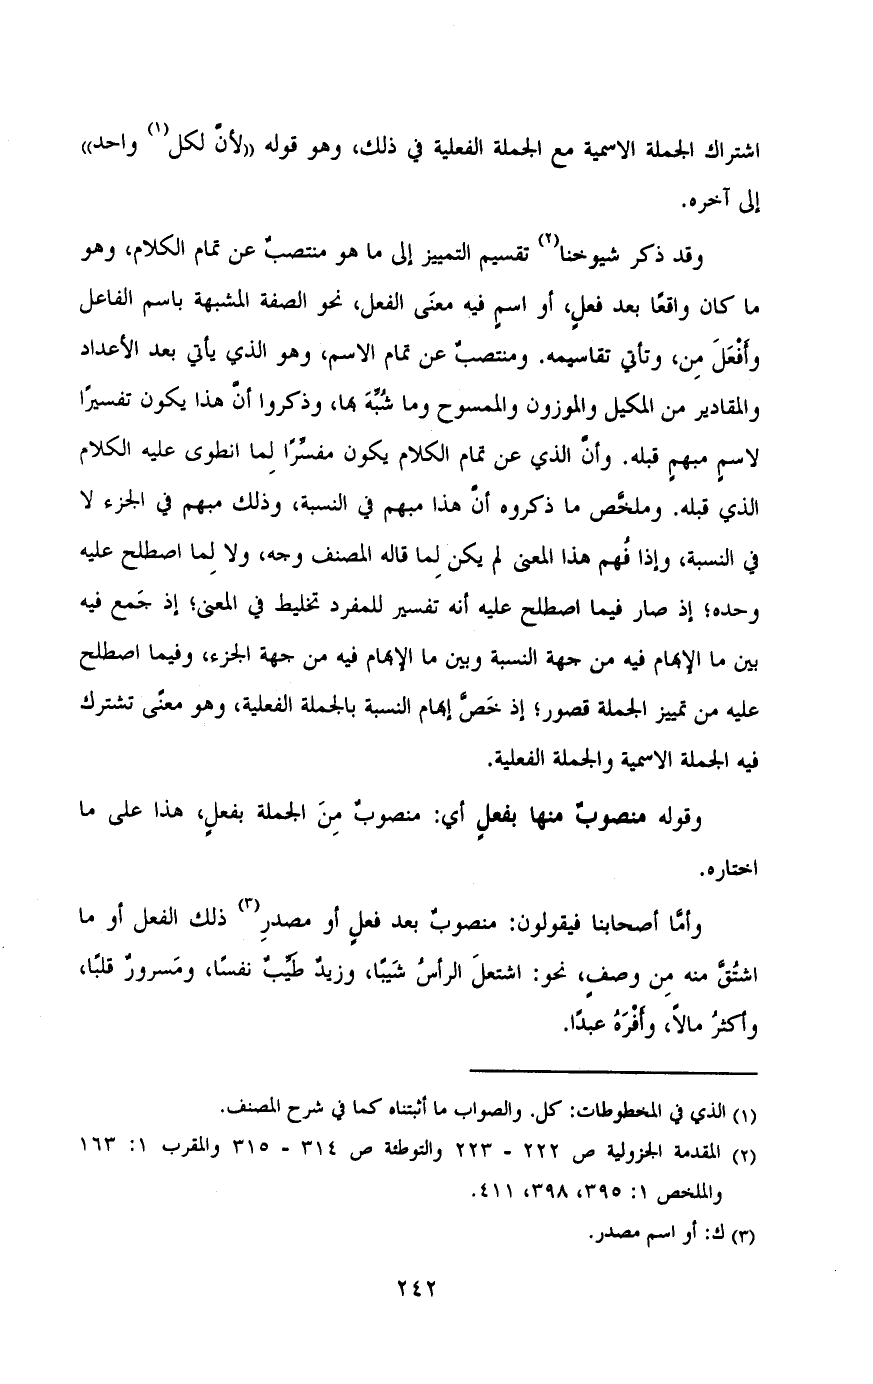 اشتراك الجملة الاسمية مع الجملة الفعلية في ذلك، وهو قوله ((لأنَّ لكل(١) واحد))
إلى آخره.
وقد ذكر شيوخنا(٢) تقسيم التمييز إلى ما هو منتصبٌ عن تمام الكلام، وهو
ما كان واقعًا بعد فعلٍ، أو اسمٍ فيه معنَى الفعل، نحو الصفة المشبهة باسم الفاعل
وأَفْعَلَ مِن، وتأتي تقاسيمه. ومنتصبٌ عن تمام الاسم، وهو الذي يأتي بعد الأعداد
والمقادير من المكيل والموزون والممسوح وما شُبِّهَ بها، وذكروا أنَّ هذا يكون تفسيرًا
لاسمٍ مبهمٍ قبله. وأنَّ الذي عن تمام الكلام يكون مفسِّرًا لِما انطوى عليه الكلام
الذي قبله. وملخَّص ما ذكروه أنَّ هذا مبهم في النسبة، وذلك مبهم في الجزء لا
في النسبة، وإذا فُهم هذا المعنى لم يكن لِما قاله المصنف وجه، ولا لِما اصطلح عليه
وحده؛ إذ صار فيما اصطلح عليه أنه تفسير للمفرد تخليط في المعنى؛ إذ جَمع فيه
بين ما الإبهام فيه من جهة النسبة وبين ما الإبهام فيه من جهة الجزء، وفيما اصطلح
عليه من تمييز الجملة قصور؛ إذ خَصَّ إبهام النسبة بالجملة الفعلية، وهو معنًى تشترك
فيه الجملة الاسمية والجملة الفعلية.
وقوله منصوبٌ منها بفعلٍ أي: منصوبٌ مِنَ الجملة بفعلٍ، هذا على ما
اختاره.
وأمَّا أصحابنا فيقولون: منصوبٌ بعد فعلٍ أو مصدرِ(٣) ذلك الفعل أو ما
اشتُقَّ منه مِن وصفٍ، نحو: اشتعلَ الرأسُ شَيبًا، وزيدٌ طَيِّبٌ نفسًا، ومَسرورٌ قلبًا،
وأكثرُ مالاً، وأَفْرَهُ عبدًا.
(١) الذي في المخطوطات: كل. والصواب ما أثبتناه كما في شرح المصنف.
(٢) المقدمة الجزولية ص ٢٢٢ - ٢٢٣ والتوطئة ص ٣١٤ - ٣١٥ والمقرب ١: ١٦٣
والملخص ١: ٣٩٥، ٣٩٨، ٤١١.
(٣) ك: أو اسم مصدر.
٢٤٢